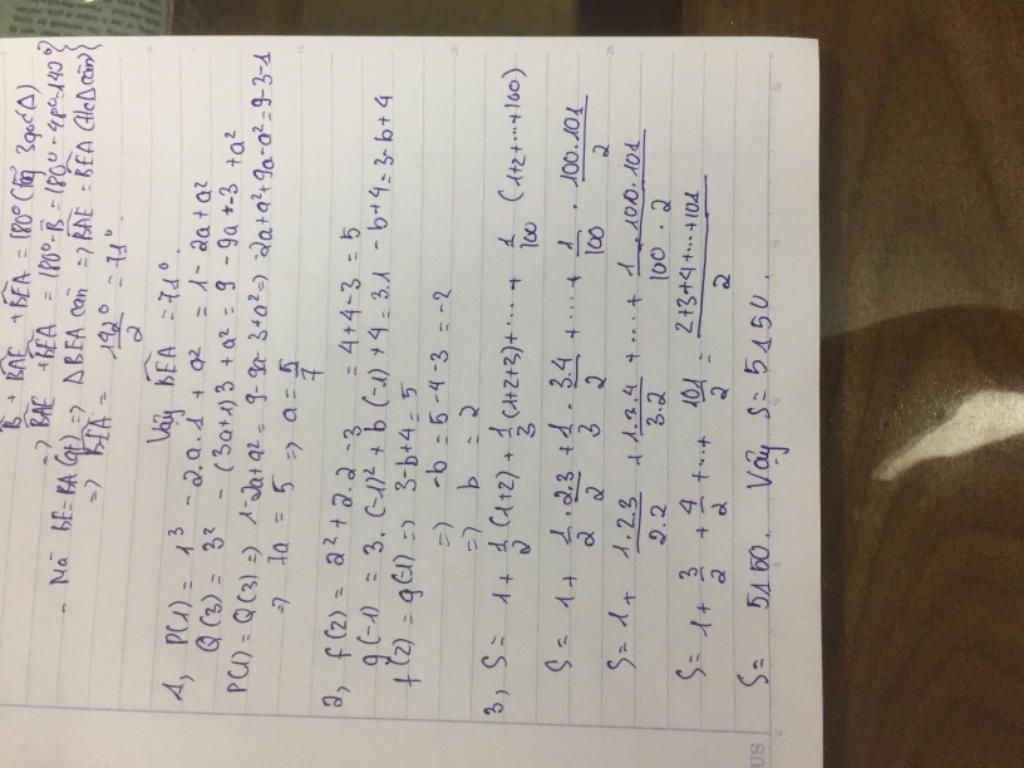 B̂ + BAE + BEA = 180° (tg 3 góc Δ)
=> BAE + BEA = 180° - B̂ =
- Mà BE=BA (gt) => Δ BEA cân => BAE = BEA
=> BEA = 142°/2 = 71°.
Vậy BEA = 71°.
1, P(1) = 1³ - 2.a.1 + a² = 1 - 2a + a²
Q(3) = 3² - (3a+1)3 + a² = 9 - 9a + -3 + a²
P(1) = Q(3) => 1-2a+a² = 9-9a-3+a² => -2a+a²+9a-a² = 9-3-1
=> 7a = 5 => a = 5/7
2, f(2) = 2² + 2.2 - 3 = 4+4-3 = 5
g(-1) = 3.(-1)² + b(-1) + 4 = 3.1 - b + 4 = 3-b+4
f(2) = g(-1) => 3-b+4 = 5
=> -b = 5-4-3 = -2
=> b = 2
3, S = 1 + 1/2 (1+2) + 1/3 (1+2+3) + .... + 1/100 (1+2+...+100)
S = 1 + 1/2 . 2.3/2 + 1/3 . 3.4/2 + ... + 1/100 . 100.101/2
S = 1 + 1.2.3/2.2 + 1.3.4/3.2 + .... + 1.100.101/100.2
S = 1 + 3/2 + 4/2 + ... + 101/2 = 2+3+4+...+101/2
S = Vậy S = 5150.